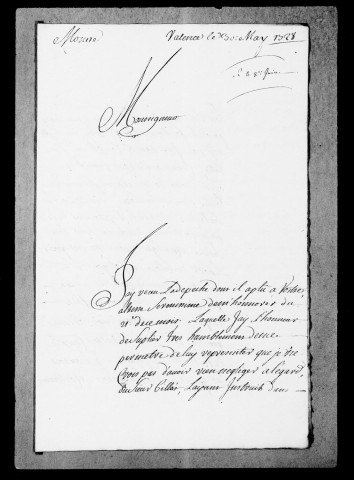 Valence le 30e May 1728
R le 8e Juin
Monseigneur
J'ay receu La depeche dont il a plu a Votre
altesse Serenissime de m honnorer du
21e de ce mois. Laquelle J'ay L'honneur
de suplier tres humblement de me
permetre de luy representer que je ne
crois pas d'avoir rien negliger a l'egard
du sieur Layant Instruit dans